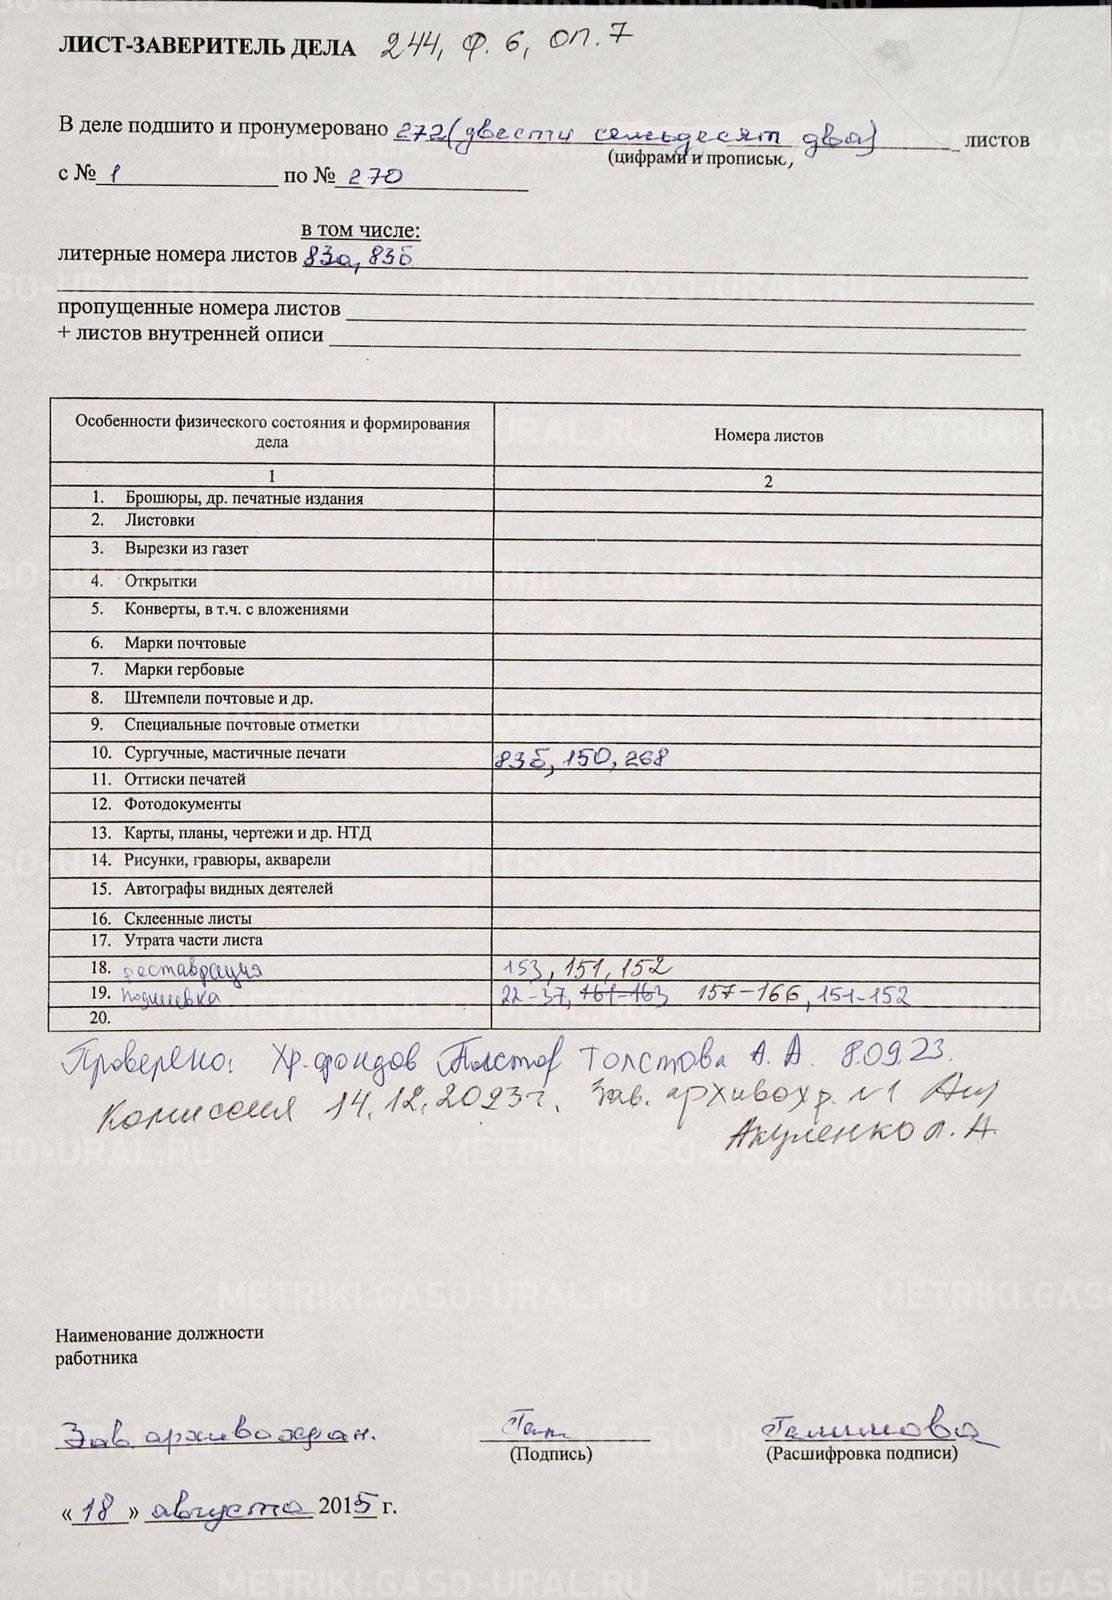 ЛИСТ-ЗАВЕРИТЕЛЬ ДЕЛА 244, ф. 6, оп. 7
В деле подшито и пронумеровано 272 (двести семьдесят два) листов
(цифрами и прописью)
с № 1 по № 270
в том числе:
литерные номера листов 83а, 83б
пропущенные номера листов
+ листов внутренней описи
Особенности физического состояния и формирования дела Номера листов
1 2
1. Брошюры, др. печатные издания
2. Листовки
3. Вырезки из газет
4. Открытки
5. Конверты, в т.ч. с вложениями
6. Марки почтовые
7. Марки гербовые
8. Штемпели почтовые и др.
9. Специальные почтовые отметки
10. Сургучные, мастичные печати 83б, 150, 268
11. Оттиски печатей
12. Фотодокументы
13. Карты, планы, чертежи и др. НТД
14. Рисунки, гравюры, акварели
15. Автографы видных деятелей
16. Склеенные листы
17. Утрата части листа
18. реставрация 153, 151, 152
19. подшивка 22-37, 161-163 157-166, 151-152
20.
Проверено: Хр. фондов Толстова А. А. 8.09.23.
Комиссия 14.12.2023 г. Зав. архивохр. №1
Акуленко Л. А.
Наименование должности
работника
Зав архивохран. Галимова
(Подпись) (Расшифровка подписи)
«18» августа 2015 г.
METRIKI.GASO-URAL.RU